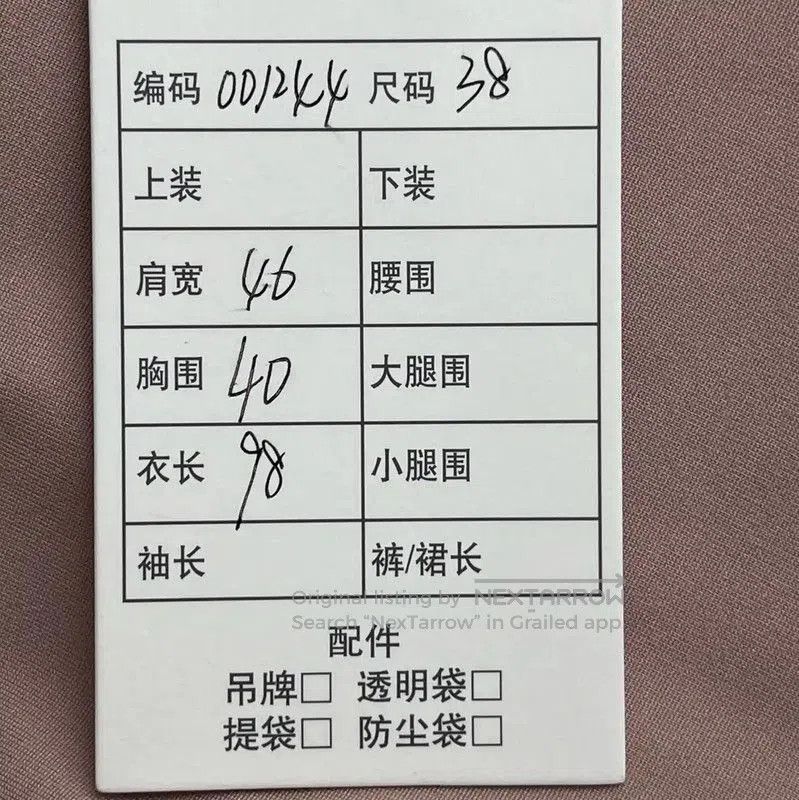 编码 001244 尺码 38
上装 下装
肩宽 46 腰围
胸围 40 大腿围
衣长 98 小腿围
袖长 裤/裙长
Original listing by NEXTARROW
Search "NexTarrow" in Grailed app
配件
吊牌□ 透明袋□
提袋□ 防尘袋□